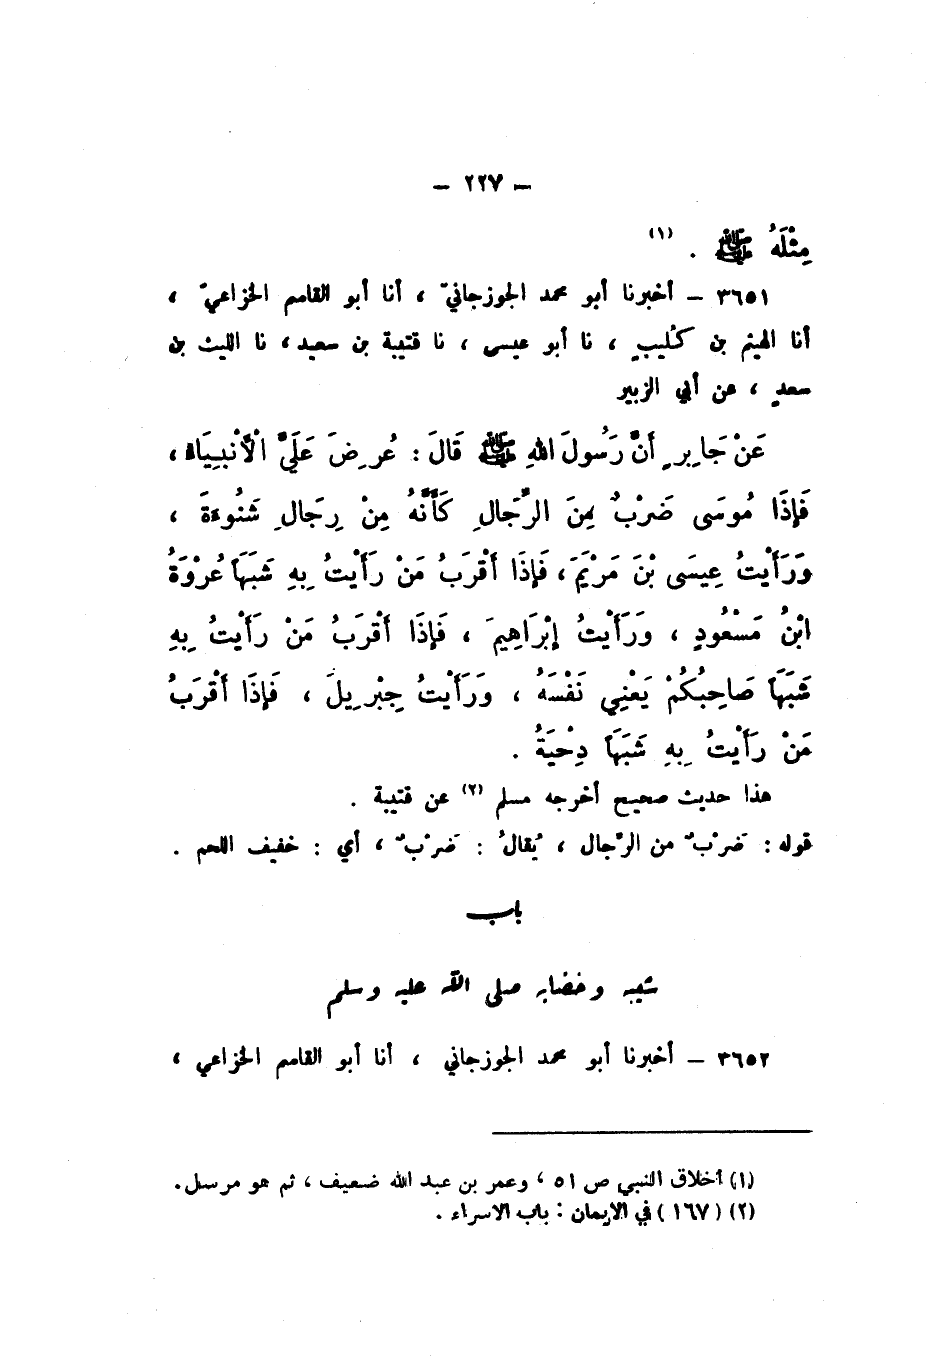 – ٢٢٧ –
مِثْلَهُ ﷺ . (١)
٣٦٥١ – أخبرنا أبو محمد الجوزجانيّ ، أنا أبو القاسم الخزاعيّ ،
أنا الهيثم بن كُليبٍ ، نا أبو عيسى ، نا قتيبة بن سعيد، نا الليث بن
سعدٍ ، عن أبي الزبير
عَنْ جَابِرٍ أَنَّ رَسُولَ اللهِ ﷺ قَالَ : عُرِضَ عَلَيَّ الْأَنْبِيَاءُ ،
فَإِذَا مُوسَى ضَرْبٌ مِنَ الرِّجَالِ كَأَنَّهُ مِنْ رِجَالِ شَنُوءَةَ ،
وَرَأَيْتُ عِيسَى بْنَ مَرْيَمَ ، فَإِذَا أَقْرَبُ مَنْ رَأَيْتُ بِهِ شَبَهَاً عُرْوَةُ
ابْنُ مَسْعُودٍ ، وَرَأَيْتُ إِبْرَاهِيمَ ، فَإِذَا أَقْرَبُ مَنْ رَأَيْتُ بِهِ
شَبَهَاً صَاحِبُكُمْ يَعْنِي نَفْسَهُ ، وَرَأَيْتُ جِبْرِيلَ ، فَإِذَا أَقْرَبُ
مَنْ رَأَيْتُ بِهِ شَبَهَاً دِحْيَةُ .
هذا حديث صحيح أخرجه مسلم (٢) عن قتيبة .
قوله : ضَرْبٌ من الرِّجال ، يُقالُ : ضَرْبٌ ، أي : خفيف اللحم .
باب
شيبه وخضابه صلى الله عليه وسلم
٣٦٥٢ – أخبرنا أبو محمد الجوزجاني ، أنا أبو القاسم الخزاعي ،
(١) أخلاق النبي ص ٥١ ، وعمر بن عبد الله ضعيف ، ثم هو مرسل .
(٢) ( ١٦٧ ) في الإيمان : باب الاسراء .